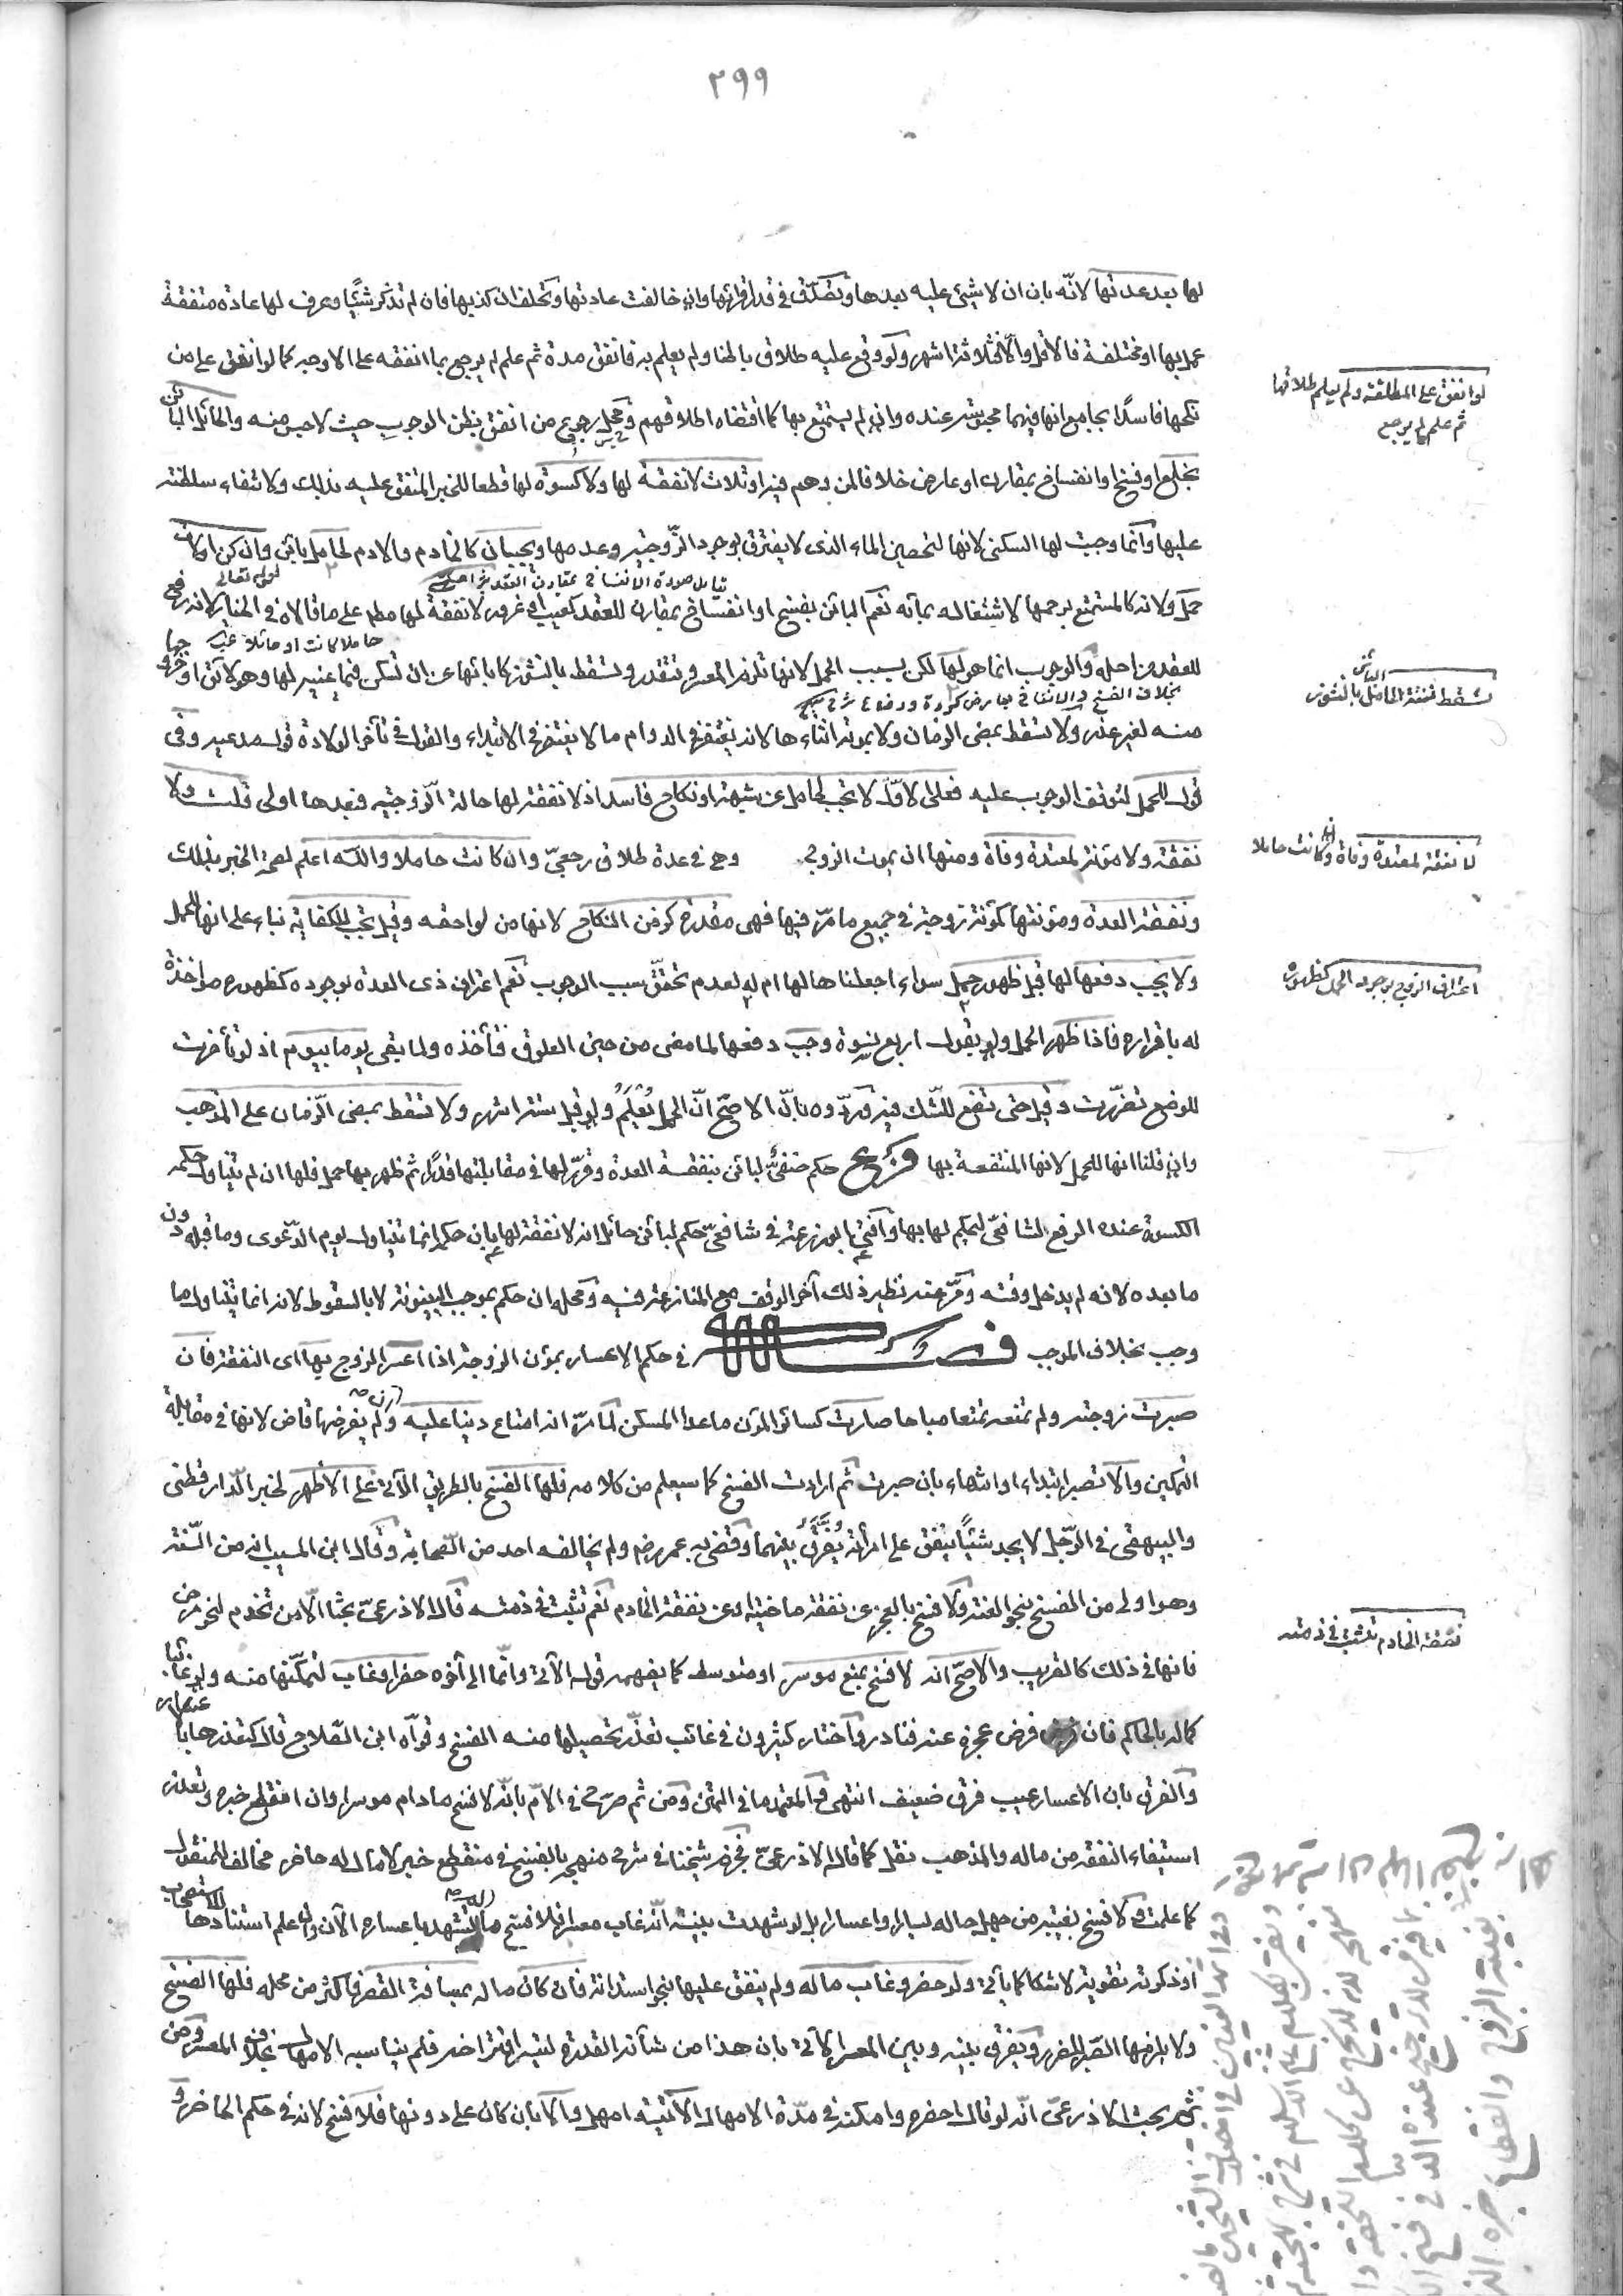 ٢٩٩
لها بعد عدتها لانّه بان ان لا شيئ عليه بعدها وتصدّق في قدر اقرائها وان خالفت عادتها وتحلف ان كذبها فان لم تذكر شيئًا وعرف لها عادة متفقة
عمل بها او مختلفة فالاقل والّا فثلاثة اشهر ولو وقع عليه طلاق باطنا ولم يعلم به فانفق مدة ثم علم لم يرجع بما انفقه على الاوجه كما لو انفق على من
نكحها فاسدًا بجامع انها فيهما محبوسة عنده وان لم يستمتع بها كما اقتضاه اطلاقهم ومحل رجوع من انفق بظن الوجوب حيث لا حبس منه والحائل البائن
بخلع او فسخ او انفساخ بمقارن او عارض خلافا لمن وهم فيه او ثلاث لا نفقة لها ولا كسوة لها قطعا للخبر المتفق عليه بذلك ولانتفاء سلطنته
عليها وانّما وجبت لها السكنى لانها لتحصين الماء الذى لا يفترق بوجود الزّوجية وعدمها ويجبان كالخادم والادم لحامل بائن وان كن اولات
لقوله تعالى
حمل ولانه كالمستمتع برحمها لاشتغاله بمائه نعم البائن بفسخ او انفساخ بمقارن للعقد كعيب او غرور لا نفقة لها مطلقا على ما قالاه في الخيار لانه رفع
حاملا كانت او حائلا
للعقد من اصله والوجوب انما هو لها لكن بسبب الحمل لانها تلزم المعسر وتتقدر وتسقط بالنشوز كابائها عن ان تسكن فيما عينه لها وهو لائق او خروجها
بخلاف الفسخ والانفساخ بعارض كردة ورضاع
منه لغير عذر ولا تسقط بمضى الزمان ولا بموته اثناءها لانه يغتفر في الدوام ما لا يغتفر في الابتداء والقول في تأخر الولادة قول مدعيه وفى
قول للحمل لتوقف الوجوب عليه فعلى الاوّل لا تجب لحامل عن شبهة او نكاح فاسد اذ لا نفقة لها حالة الزّوجية فبعدها اولى قلت ولا
نفقة ولا مؤنة لمعتدة وفاة ومنها ان يموت الزوج وهي في عدة طلاق رجعيّ وان كانت حاملا والله اعلم لصحة الخبر بذلك
ونفقة العدة ومؤنتها كمؤنة زوجة في جميع ما مرّ فيها فهى مقدرة كزمن النكاح لانها من لواحقه وقيل تجب الكفاية بناء على انها للحمل
ولا يجب دفعها لها قبل ظهور حمل سواء اجعلناها لها ام له لعدم تحقّق سبب الوجوب نعم اعتراف ذى العدة بوجوده كظهوره مؤاخذة
له باقراره فاذا ظهر الحمل ولو بقول اربع نسوة وجب دفعها لما مضى من حين العلوق فتأخذه ولما بقى يوما بيوم اذ لو تأخرت
للوضع تضرّرت وقيل حتى تضع للشّك فيه وردّوه بانّ الاصحّ انّ الحمل يُعْلَمُ ولو قبل ستة اشهر ولا تسقط بمضى الزّمان على المذهب
وان قلنا انها للحمل لانها المنتفعة بها فرع حكم حنفىّ لبائن بنفقة العدة وقرّر لها في مقابلتها قدرًا ثم ظهر بها حمل فلها ان لم يتناول حكمه
الكسوة عنده الرفع لشافعىّ ليحكم لها بها وافتى ابو زرعة في شافعىّ حكم لبائن حائل انه لا نفقة لها بان حكمه انما يتناول يوم الدّعوى وما قبله دون
ما بعده لانه لم يدخل وقته ومرّ عنه نظير ذلك آخر الوقف مع المنازعة فيه ومحله ان حكم بموجب البينونة لا بالسقوط لانه انما يتناول ما
وجب بخلاف الموجب فصل في حكم الاعسار بمؤن الزوجة اذا اعسر الزوج بها اى النفقة فان
صبرت زوجته ولم تمنعه تمتعا مباحا صارت كسائر المؤن ماعدا المسكن لما مرّ انه امتاع دينا عليه وان لم يفرضها قاض لانها في مقابلة
التمكين والّا تصبر ابتداء او انتهاء بان صبرت ثم ارادت الفسخ كما سيعلم من كلامه فلها الفسخ بالطريق الآتي على الأظهر لخبر الدّارقطنى
والبيهقى في الرّجل لا يجد شيئًا ينفق على امرأته يُفرَّق بينهما وقضى به عمر رضه ولم يخالفه احد من الصّحابة وقال ابن المسيب انه من السّنة
وهو اولى من الفسخ بنحو العنة ولا فسخ بالعجز عن نفقة ماضية او عن نفقة الخادم نعم تثبت في ذمته قال الاذرعىّ بحثا الّا من تخدم لنحو مرض
فانها في ذلك كالقريب والاصحّ انه لا فسخ بمنع موسر او متوسط كما يفهمه قوله الآتي وانّما الى آخره حضر او غاب لتمكّنها منه ولو غائبا
كماله بالحاكم فان فرض عجزه عنه فنادر واختار كثيرون في غائب تعذّر تحصيلها منه الفسخ وقوّاه ابن الصّلاح قال كتعذرها بالاعسار
والفرق بان الاعسار عيب فرق ضعيف انتهى والمعتمد ما في المتن ومن ثم صرّح في الامّ بانّه لا فسخ مادام موسرا وان انقطع خبره وتعذر
استيفاء النفقة من ماله والمذهب نقل كما قاله الاذرعىّ فجزم شيخنا في شرح منهجه بالفسخ في منقطع خبر لا مال له حاضر مخالف للمنقول
كما علمت ولا فسخ بغيبة من جهل حاله يسارا واعسارا بل لو شهدت بينة انّه غاب معسرا فلا فسخ ما لم تشهد باعساره الآن وان علم استنادها للاستصحاب
او ذكرته تقوية لا شكا كما يأتي ولو حضر وغاب ماله ولم ينفق عليها بنحو استدانة فان كان ماله بمسافة القصر فاكثر من محله فلها الفسخ
ولا يلزمها الصّبر للضرر ويفرق بينه وبين المعسر الآتي بان هذا من شأنه القدرة لتيسر اقتراضه فلم يناسبه الامهال بخلاف المعسر ومن
ثم بحث الاذرعىّ انّه لو قال احضره وامكنه في مدّة الامهال الآتية امهل والّا بان كان على دونها فلا فسخ لانه في حكم الحاضر و
لو انفق على المطلقة ولم يعلم طلاقها
ثم علم لم يرجع
تسقط نفقة الحامل البائن بالنشوز
لا نفقة لمعتدة وفاة وان كانت حاملا
اعتراف الزوج بوجود الحمل كظهوره
نفقة الخادم تثبت في ذمته